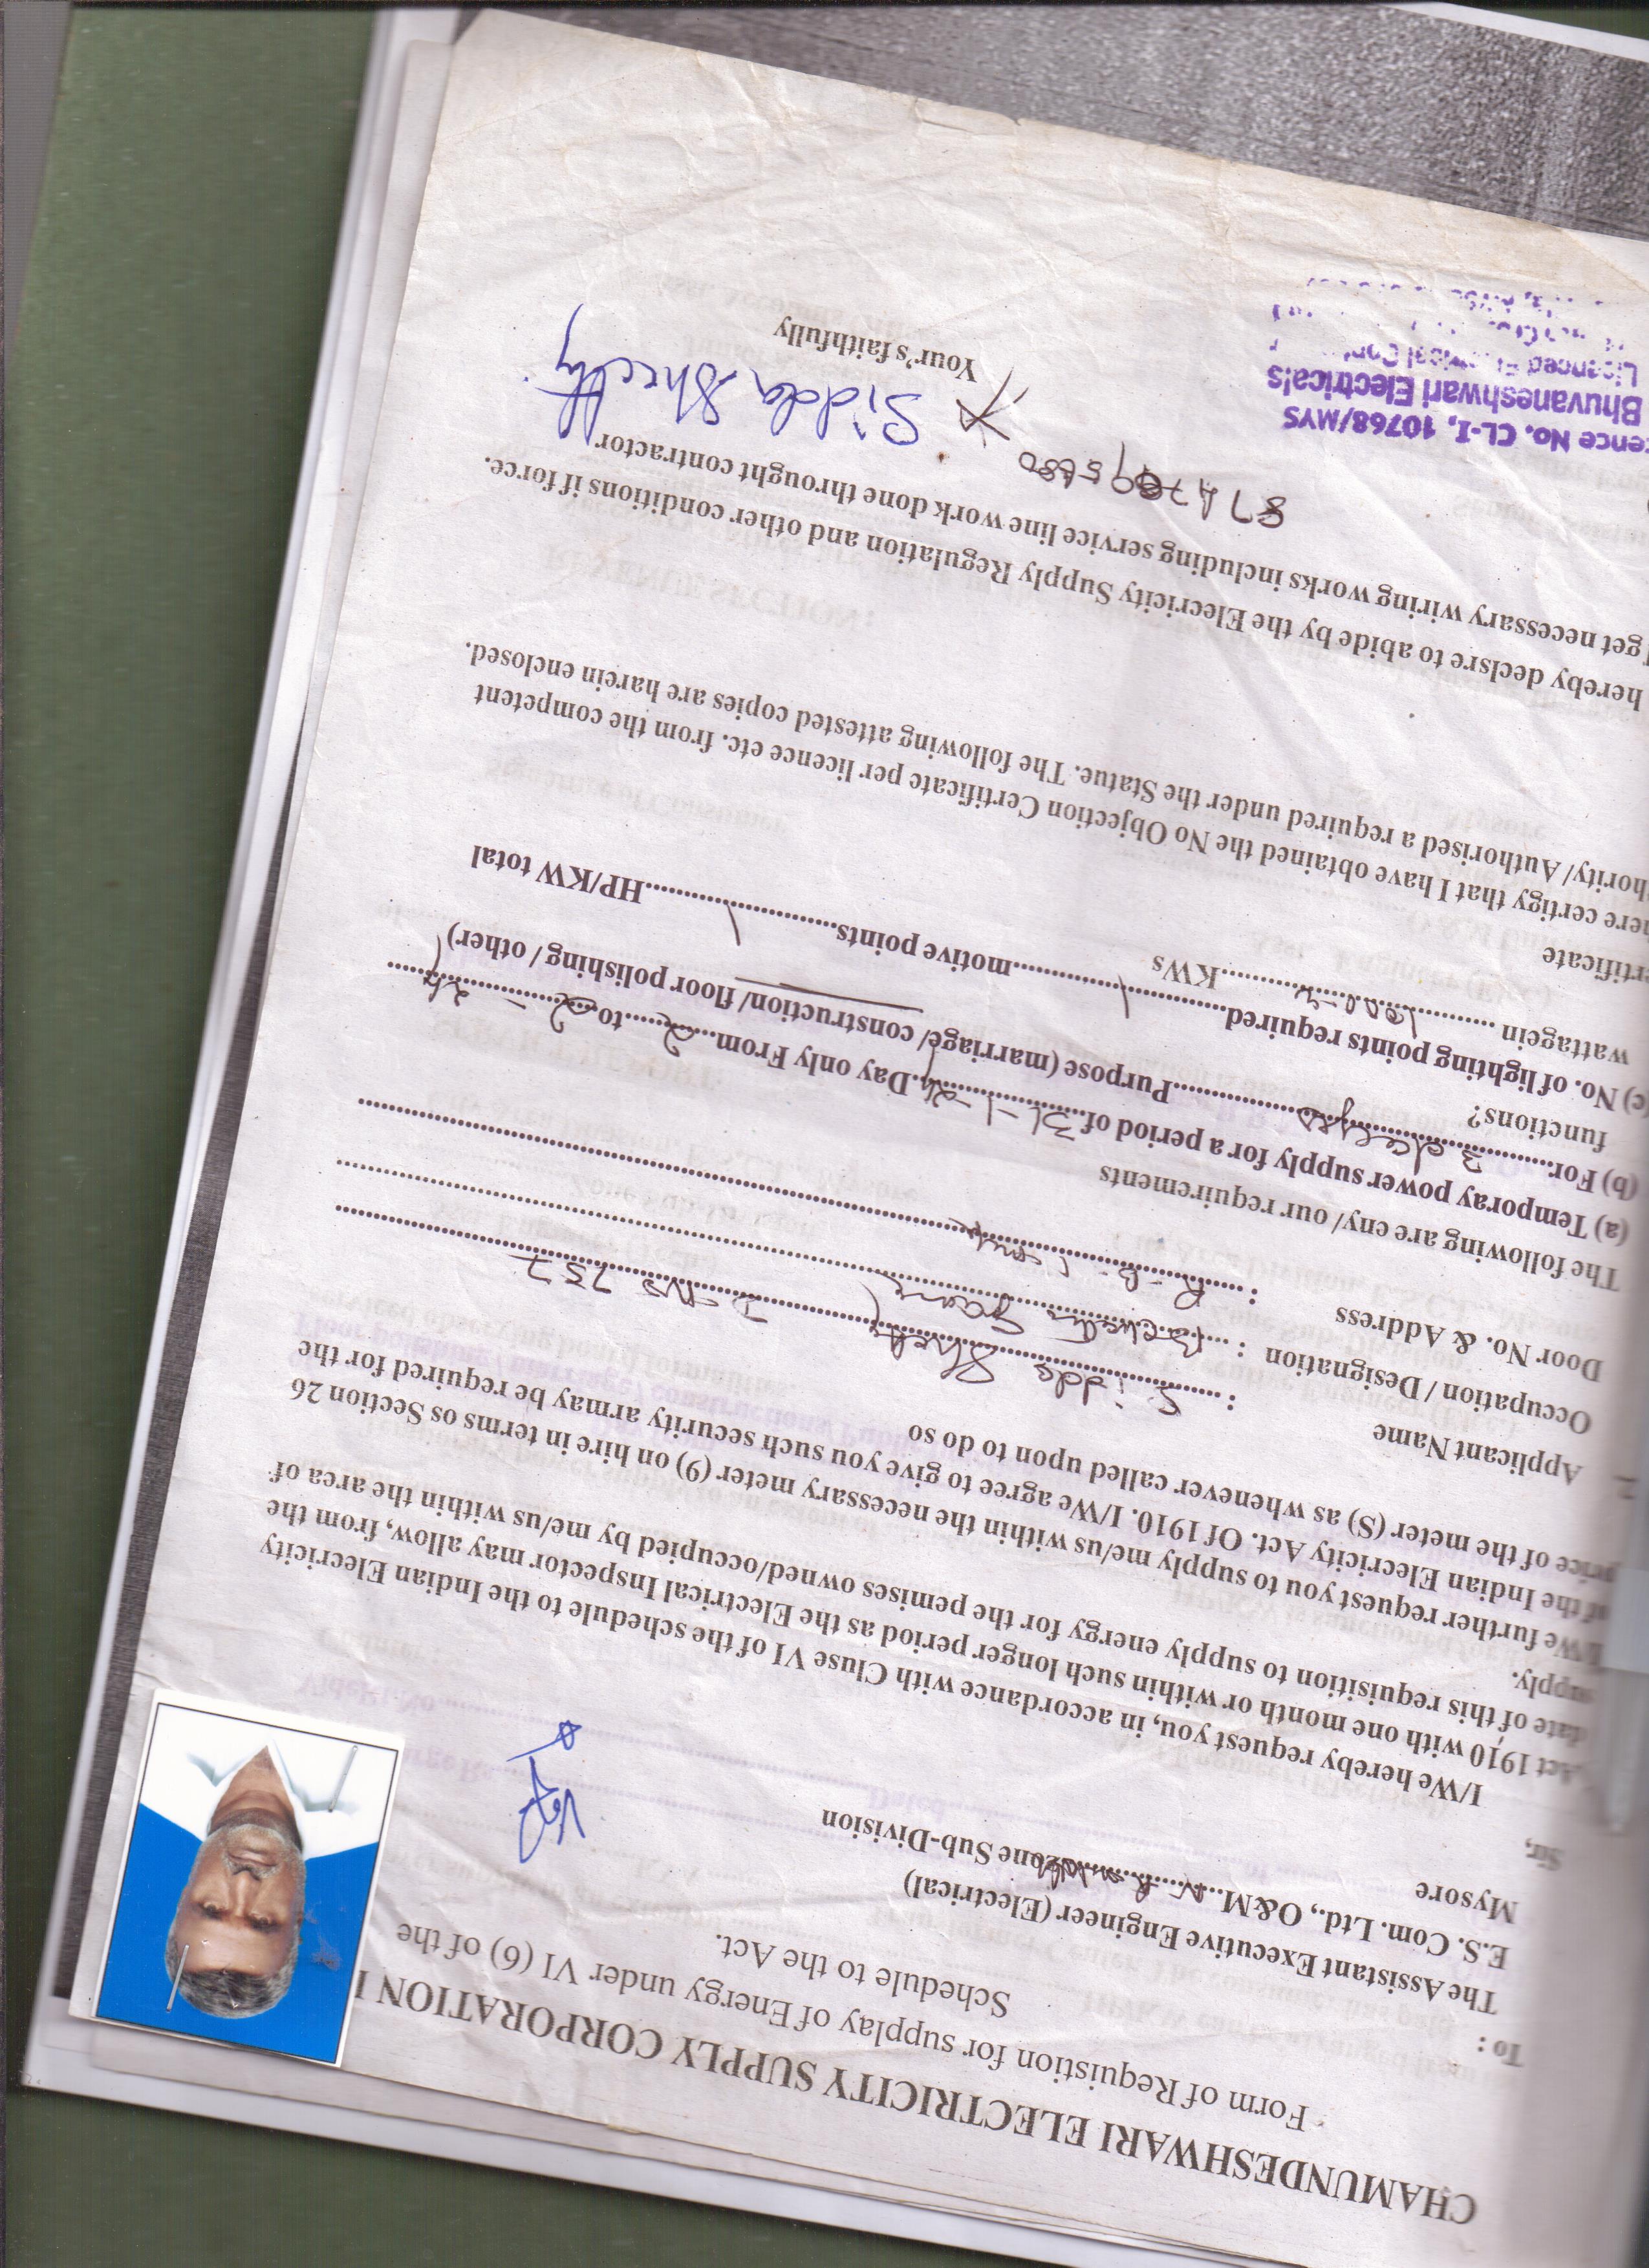 CHAMUNDESHWARI ELECTRICITY SUPPLY CORPORATION
Form of Requistion for supplay of Energy under VI (6) of the
Schedule to the Act.
To :
The Assistant Executive Engineer (Electrical)
E.S. Com. Ltd., O&M.. N.R. zone Sub-Division
Mysore
Sir,
I/We hereby request you, in accordance with Cluse VI of the schedule to the Indian Elecricity
Act 1910 with one month or within such longer period as the Electrical Inspector may allow, from the
date of this requisition to supply energy for the pemises owned/occupied by me/us within the area of
supply.
I/We further request you to supply me/us within the necessary meter (9) on hire in terms os Section 26
of the Indian Elecricity Act. Of 1910. I/We agree to give you such security armar be required for the
price of the meter (S) as whenever called upon to do so
Applicant Name : Sidda Shetty D No 757
Occupation / Designation :
Door No. & Address :
The following are eny/ our requirements
(a) Temporay power supply for a period of 31-1-24 Day only From 2 to 2 - 24
(b) For 3 days Purpose (marriage/ construction/ floor polishing / other)
functions?
(c) No. of lighting points required motive points HP/KW total
wattagein KWs
certificate
here certigy that I have obtained the No Objection Certificate per licence etc. from the competent
hority/ Authorised a required under the Statue. The following attested copies are harein enclosed.
hereby declsre to abide by the Elecricity Supply Regulation and other conditions if force.
get necessary wiring works including service line work done throught contractor
Sidda Shetty
Your's faithfully
cence No. CL-I, 10768/MYS
Bhuvaneshwari Electricals